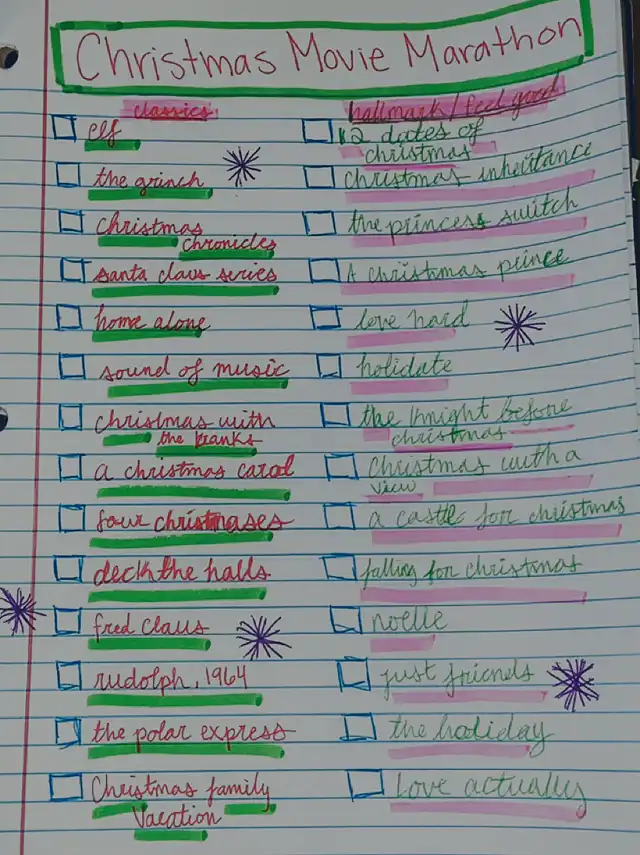 Christmas Movie Marathon
classics
elf
the grinch
christmas
chronicles
santa claus series
home alone
sound of music
christmas with
the kranks
a christmas carol
four christmases
deck the halls
fred claus
rudolph, 1964
the polar express
Christmas family
Vacation
hallmark/feel good
12 dates of
christmas
christmas inheritance
the princess switch
A christmas prince
love hard
holidate
the knight before
christmas
Christmas with a
view
a castle for christmas
falling for christmas
noelle
just friends
the holiday
Love actually